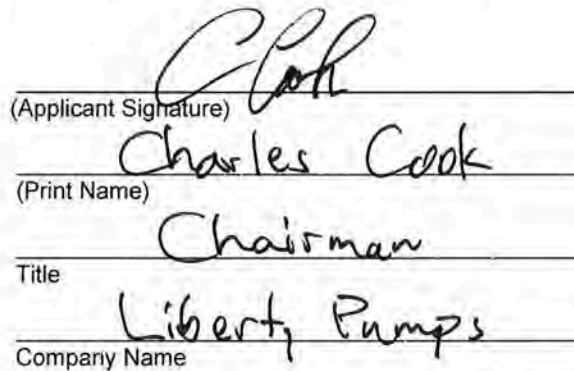 C Cook
(Applicant Signature)
Charles Cook
(Print Name)
Chairman
Title
Liberty Pumps
Company Name